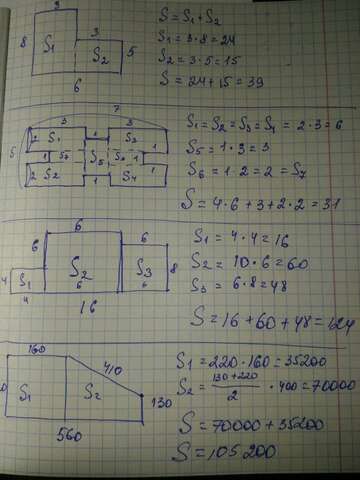 3
8
S1
3
S2
5
6
S = S1 + S2
S1 = 3·8 = 24
S2 = 3·5 = 15
S = 24 + 15 = 39
7
3
3
2 S1
1
S3
5
1
S7
S5
S6
1
1
2 S2
1
S4
1
S1 = S2 = S3 = S4 = 2·3 = 6
S5 = 1·3 = 3
S6 = 1·2 = 2 = S7
S = 4·6 + 3 + 2·2 = 31
6
6
6
4
S1
S2
S3
8
4
6
6
16
S1 = 4·4 = 16
S2 = 10·6 = 60
S3 = 6·8 = 48
S = 16 + 60 + 48 = 124
160
410
S1
S2
130
560
S1 = 220·160 = 35200
S2 = (130+220)/2 · 400 = 70000
S = 70000 + 35200
S = 105 200